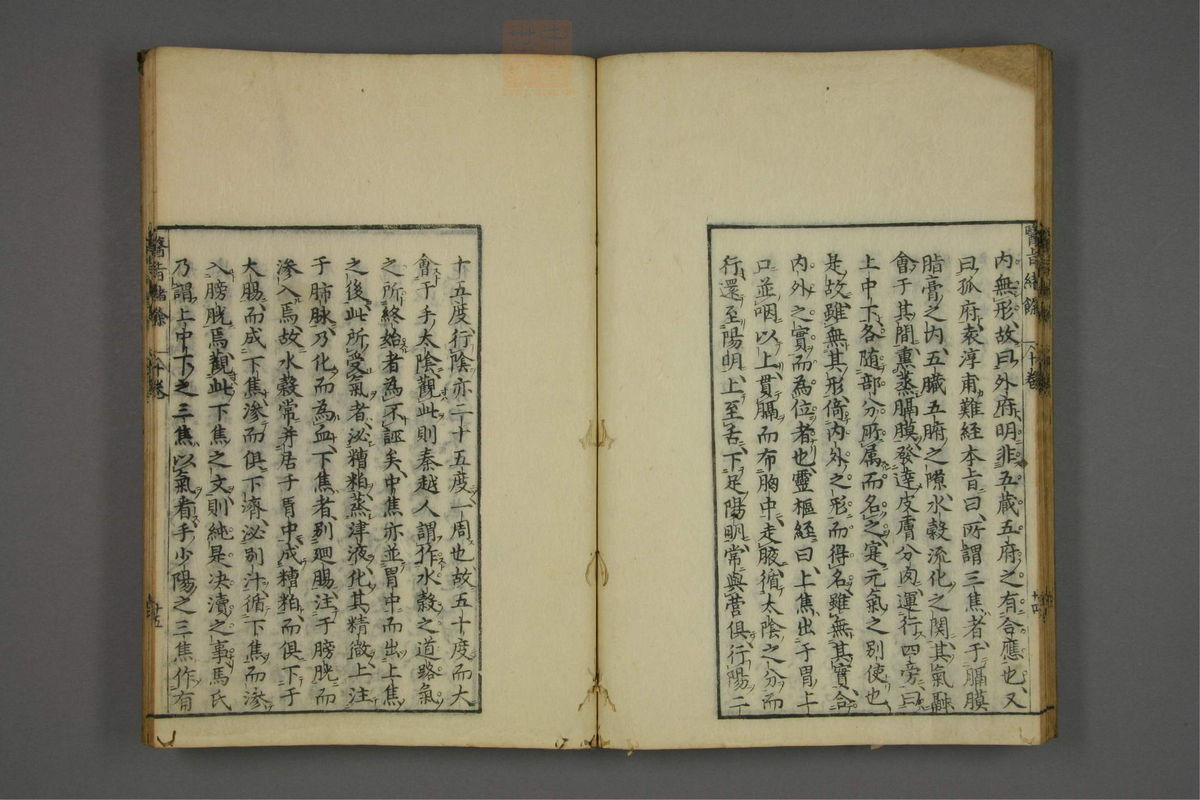 内無形故曰外府明非五蔵五府之有合應也又
曰孤府袁淳甫難經本旨曰所謂三焦者于膈膜
脂膏之内五臓五腑之隙水穀流化之関其氣融
會于其間熏蒸膈膜發達皮膚分肉運行四旁曰
上中下各随部分所属而名之寔元氣之別使也
是故雖無其形倚内外之形而得名雖無其實合
内外之實而為位者也靈樞經曰上焦出于胃上
口並咽以上貫膈而布胸中走腋循太陰之分而
行還至陽明上至舌下足陽明常與営俱行陽二
醫旨緒餘 卷 廿四
十五度行陰亦二十五度一周也故五十度而大
會于手太陰觀此則秦越人謂作水穀之道路氣
之所終始者為不誣矣中焦亦並胃中而出上焦
之後此所受氣者泌糟粕蒸津液化其精微上注
于肺脉乃化而為血下焦者別廻腸注于膀胱而
滲入焉故水穀常并居于胃中成糟粕而俱下于
大腸而成下焦滲而俱下濟泌別汁循下焦而滲
入膀胱焉觀此下焦之文則純是决瀆之事馬氏
乃謂上中下之三焦以氣看手少陽之三焦作有
醫旨緒餘 卷 廿五